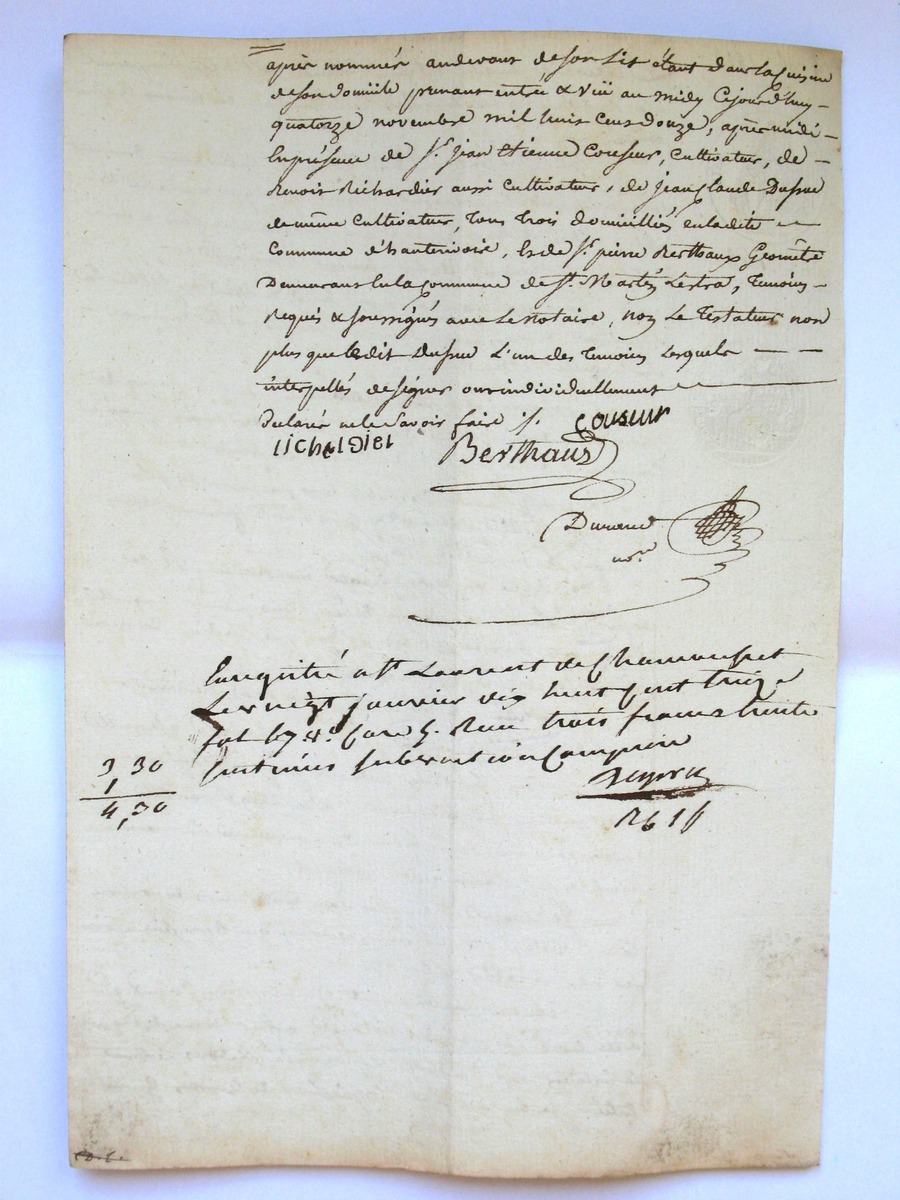 après nommés audevant de son lit étant dans la cuisine
de son domicile prenant entrée & vüe au midy Cejourd'huy
quatorze novembre mil huit Cent douze, après midi
En présence de Sr. Jean Etienne Couseur, Cultivateur, de
Benoit Richardier aussi Cultivateur, de Jean Claude
de même Cultivateur, tous trois domiciliés en ladite
Commune d'hauterivoire, & de Sr. pierre Berthaux Géomètre
Demeurant En la Commune de St. Martin Lestra, témoins
Requis & soussignés avec Le Notaire, non Le Testateur non
plus que ledit L'un des témoins Lesquels
interpellés de signer ont individuellement
Déclaré ne le savoir faire ./.
couseur
richardier
Berthaux
Durand
nore
Enregistré a St Laurent de Chamousset
Le vingt janvier dix huit Cent treize
fol. 67 Vo. Case 5. Reçu trois francs trente
Centimes subvention Comprise
3,30
1
4,30